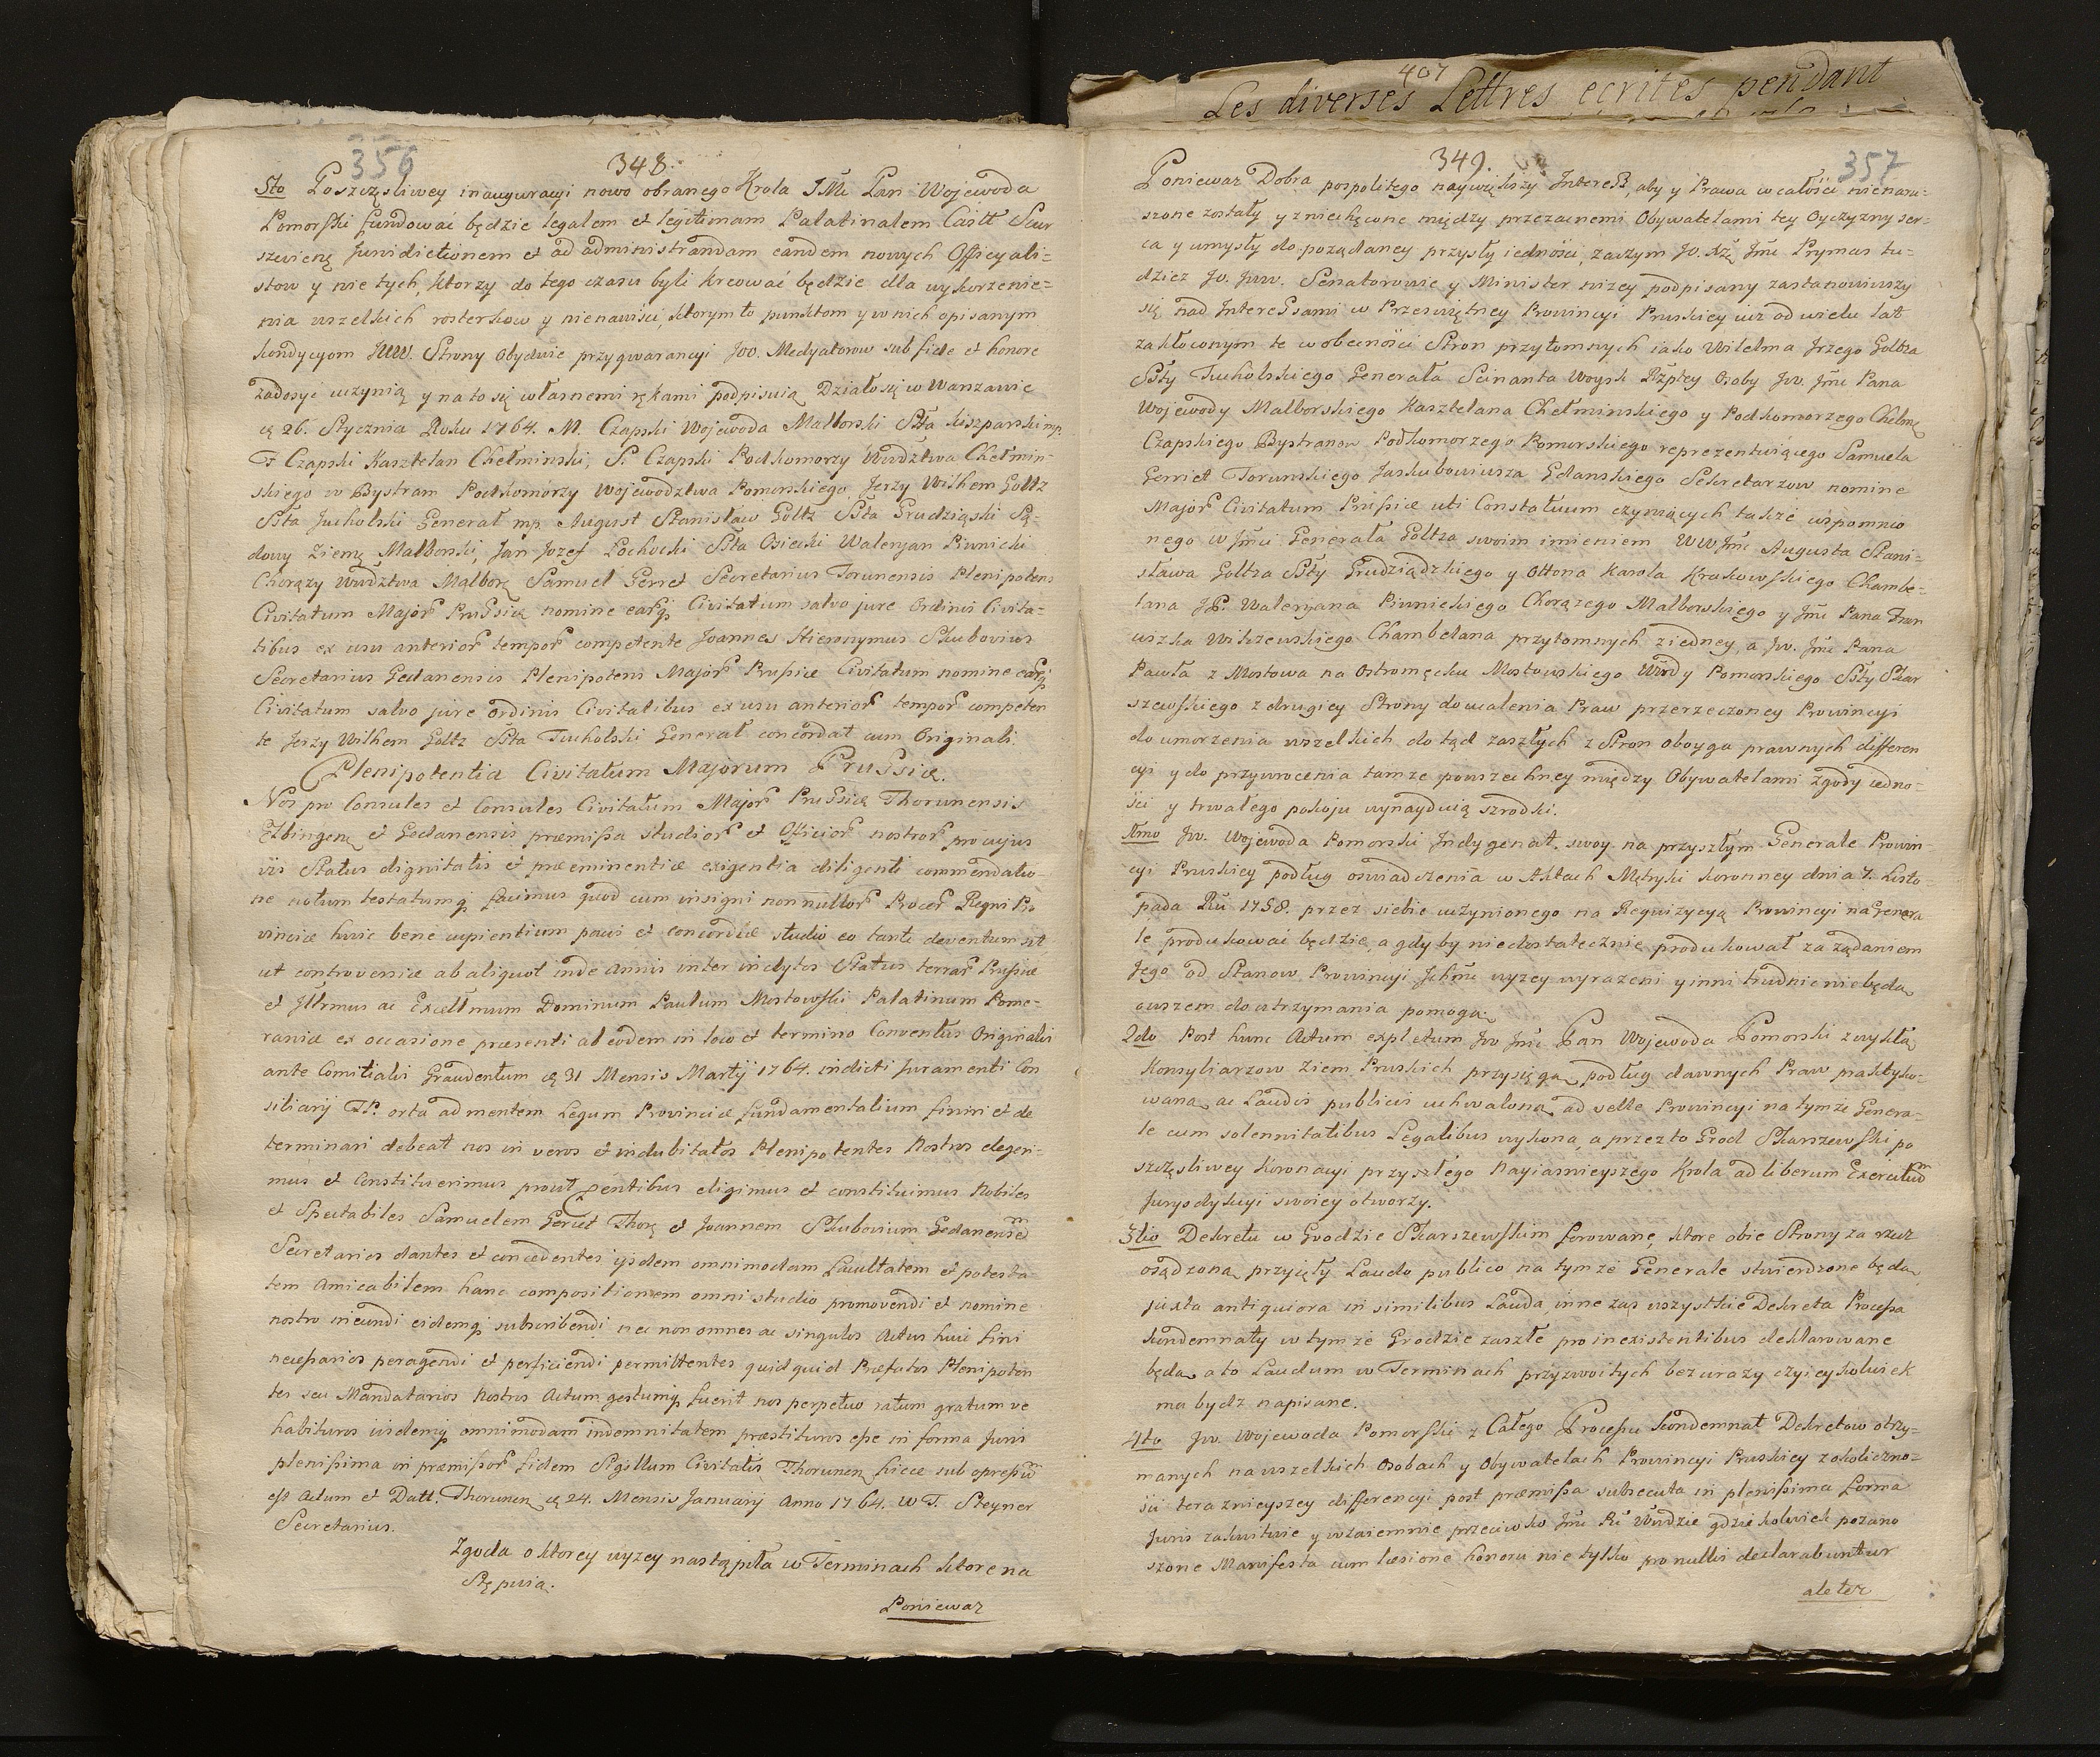 407
Les diverses Lettres ecrites pendant
356
348.
5to Poszczęsliwey inauguracyi nowo obranego Krola JMć Pan Wojewoda
Pomorski fundowac będzie legalem et legitimam Palatinalem Castr Scar
szevienę Jurisdictionem et ad administrandam eandem nowych Officyali=
stow y nie tych, ktorzy do tego czasu byli kreować będzie dla wykorzenie=
nia wszelkich rosterkow y nienawisci, ktorym to punktom y w nich opisanym
kondycyom JWW. Strony obydwie przy gwarancyi JOO. Medyatorow sub fide et honore
zadosyc uczynią y na to się własnemi rękami podpisuią Działo się w Warszawie
d 26. Stycznia Roku 1764. M. Czapski Wojewoda Malborski Stta Kiszparski mp.
F Czapski Kasztelan Chełminski, P. Czapski Podkomorzy Wwdztwa Chełmin-
skiego w Bystram Podkomorzy Wojewodztwa Pomorskiego Jerzy Wilhem Goltz
Stta Tucholski Generał mp. August Stanisław Goltz Stta Grudziąski Są-
dowy Ziemę Malborski, Jan Jozef Łochocki Stta Osiecki Waleryan Piwnicki
Chorązy Wwdztwa Malborę Samuel Gerret Secretarius Torunensis Plenipotens
Civitatum Major Prussiæ nomine earq Civitatum salvo jure Ordinis Civita-
tibus ex usu anterior tempor competente Joannes Hieronymus Skubovius
Secretarius Gedanensis Plenipotens Major Prussiæ Civitatum nomine earq
Civitatum salvo jure ordinis Civitatibus ex usu anterior tempor competen
te Jerzy Wilhem Goltz Stta Tucholski Generał concordat cum Originali.
Plenipotentia Civitatum Majorum Prussiæ.
Nos pro Consules et Consules Civitatum Major Prussiæ Thorunensis
Elbingenę et Gedanensis præmissa studior et Officior nostror pro cujus
vis Status dignitatis et præeminentiæ exigentia diligenti commendatio-
ne notum testatumq facimus quod cum insigni nonnullor Procer Regni Pro
vinciæ huic bene cupientium pacis et concordiæ studio eo tanti deventum sit
ut controversiæ ab aliquot inde annis inter inclytos Status terrar Prussiæ
et Jllrmus ac Excellmum Dominum Paulum Mostowski Palatinum Pome-
raniæ ex occasione præsenti ab eodem in loco et termino Conventus Originalis
ante Comitialis Graudentum d 31 Mensis Martij 1764. indicti Juramenti Con
siliarij TP. orta ad mentem Legum Provinciæ fundamentalium finiri et de
terminari debeat nos in veros et indubitatos Plenipotentes Nostros elegeri-
mus et Constituerimus prout pentibus eligimus et constituimus Nobiles
et Spectabiles Samuelem Gerret Thorę et Joannem Skubovium Gedanensem
Secretarios dantes et concedentes ijsdem omnimodam facultatem et potesta
tem amicabilem hanc compositionem omni studio promovendi et nomine
nostro ineundi eidemq subscribendi nec non omnes ac singulos Actus huic fini
necessarios peragendi et perficiendi permittentes quidquid Præfatos Plenipoten
tes seu Mandatarios Nostros Actum gestumq fuerit nos perpetuo ratum gratum ve
habituros iisdemq omnimodam indemnitatem præstituros esse in forma Juris
plenissima in præmissor fidem Sigillum Civitatis Thorunen hisce sub opressu
est Actum et Datt. Thorunen d 24. Mensis January Anno 1764. W T. Steyner
Secretarius.
Zgoda o ktorey wyzey nastąpiła w Terminach ktore na
stępuią.
Poniewaz
349.
357
Poniewaz Dobra pospolitego naywiększy Interess, aby y Prawa w całości nienaru-
szone zostały y zniechęcone między przezacnemi Obywatelami tey Oyczyzny ser-
ca y umysły do pożądaney przyszły iedności, zaczym Jo. Xże Jmć Prymas tu=
dziez Jo. Jww. Senatorowie y Minister nizey podpisany zastanowiwszy
się nad Interessami w Przeświętney Prowincyi Pruskiey iuż od wielu lat
zakłuconym te w obecności Stron przytomnych iako Wilelma Jrzego Goltza
Stty Tucholskiego Generała Leinanta Woysk Rzptey Osoby Jw. Jmć Pana
Wojewody Malborskiego Kasztelana Chełminskiego y Podkomorzego Chełmę
Czapskiego Bystranow Podkomorzego Pomorskiego reprezentuiącego Samuela
Gerriet Torunskiego Jaskubowiusza Gdanskiego Sekretarzow nomine
Major Civitatum Prussiæ uti Constatuum czyniących także wspomnio
nego w Jmci Generała Goltza swoim imieniem WWJmć Augusta Stani-
sława Goltza Stty Grudziądzkiego y Ottona Karola Krokowskiego Chambe-
lana JP. Waleryana Piwnickiego Chorązego Malborskiego y Jmć Pana Fran
uszka Wilczewskiego Chambelana przytomnych z iedney, a Jw. Jmć Pana
Pawła z Mostowa na Ostromęcku Mostowskiego Wwdy Pomorskiego Stty Skar
szewskiego z drugiey Strony do ucalenia Praw przerzeczoney Prowincyi
do umorzenia wszelkich do tąd zaszłych z Stron oboyga prawnych differen
cyi y do przywrocenia tamze powszechney między Obywatelami zgody iedno-
ści y trwałego pokoju wynayduią szrodki.
1mo Jw. Wojewoda Pomorski Indygenat swoy na przyszłym Generale Prowin
cyi Pruskiey podług oswiadczenia w Aktach Metryki Koronney dnia 7. Listo-
pada Ru 1758. przez siebie uczynionego na Requizycyą Prowincyi na Genera
le produkować będzie, a gdyby niedostatecznie produkował za ządaniem
Jego od Stanow Prowincyi Jchmć wyzey wyrazeni y inni trudnic nie będą
owszem do utrzymania pomogą.
2do Post hunc Actum expletum Jw Jmć Pan Wojewoda Pomorski zwykłą
Konsyliarzow Ziem Pruskich przysięgą podług dawnych Praw praktyko-
waną ac Laudis publicis uchwaloną ad velle Prowincyi na tymże Genera-
le cum solennitatibus Legalibus wykona, a przez to Grod Skarszewski po
szczęsliwey Koronacyi przyszłego Nayiasnieyszego Krola ad liberum Exercitium
Jurysdykcyi swoiey otworzy.
3tio Dekretu w Grodzie Skarszewskim ferowane, ktore obie Strony za rzecz
osądzoną przyięły Laudo publico na tymże Generale stwierdzone będą
juxta antiquiora in similibus Lauda, inne zaś wszystkie Dekreta Processa
kondemnaty w tymże Grodzie zaszłe pro inexistentibus deklarowane
będą a to Laudum w Terminach przyzwoitych bez urazy czyieykolwiek
ma bydz napisane.
4to Jw. Wojewoda Pomorski z Całego Processu kondemnat Dekretow otrzy-
manych na wszelkich Osobach y Obywatelach Prowincyi Pruskiey z okoliczno=
ści teraznieyszey differencyi post præmissa subsecuta in plenissima forma
Juris zakwituie y wzaiemnie przeciwko Jmć Pu Wwdzie gdziekolwiek pozano
szone Manifesta cum læsione honoru nie tylko pro nullis declarabuntur
ale tez